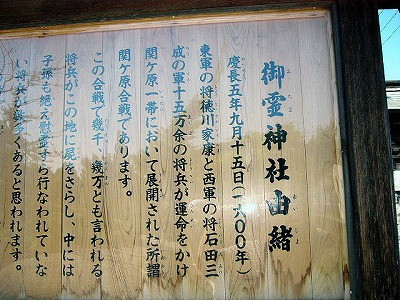 御霊神社由緒
慶長五年九月十五日（一六〇〇年）
東軍の将徳川家康と西軍の将石田三
成の軍十五万余の将兵が運命をかけ
関ケ原一帯において展開された所謂
関ケ原合戦であります。
この合戦で幾千、幾万とも言われる
将兵がこの地に屍をさらし、中には
子孫も絶え慰霊すら行なわれていな
い将兵が数多くあると思われます。